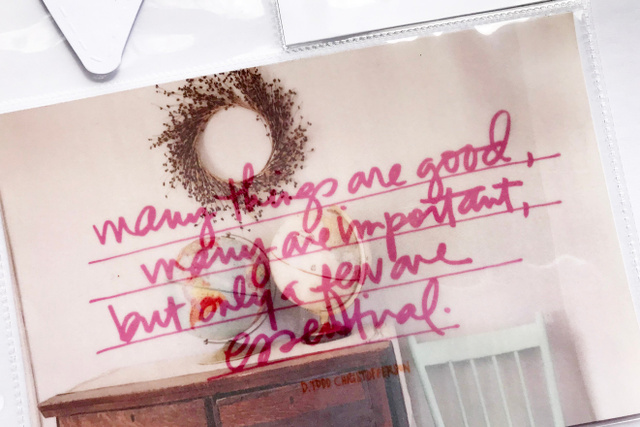 many things are good,
many are important,
but only a few are
essential.
D. TODD CHRISTOFFERSON